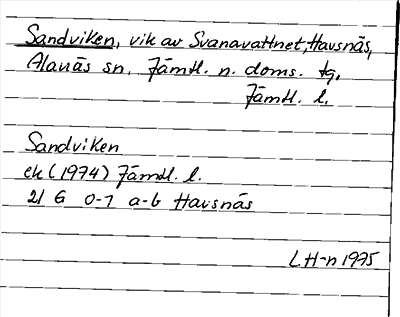 Sandviken, vik av Svanavattnet, Havsnäs,
Alanäs sn. Jämtl. n. doms. tg.
Jämtl. l.
Sandviken
ek (1974) Jämtl. l.
21 G 0-1 a-b Havsnäs
L.H-n 1975